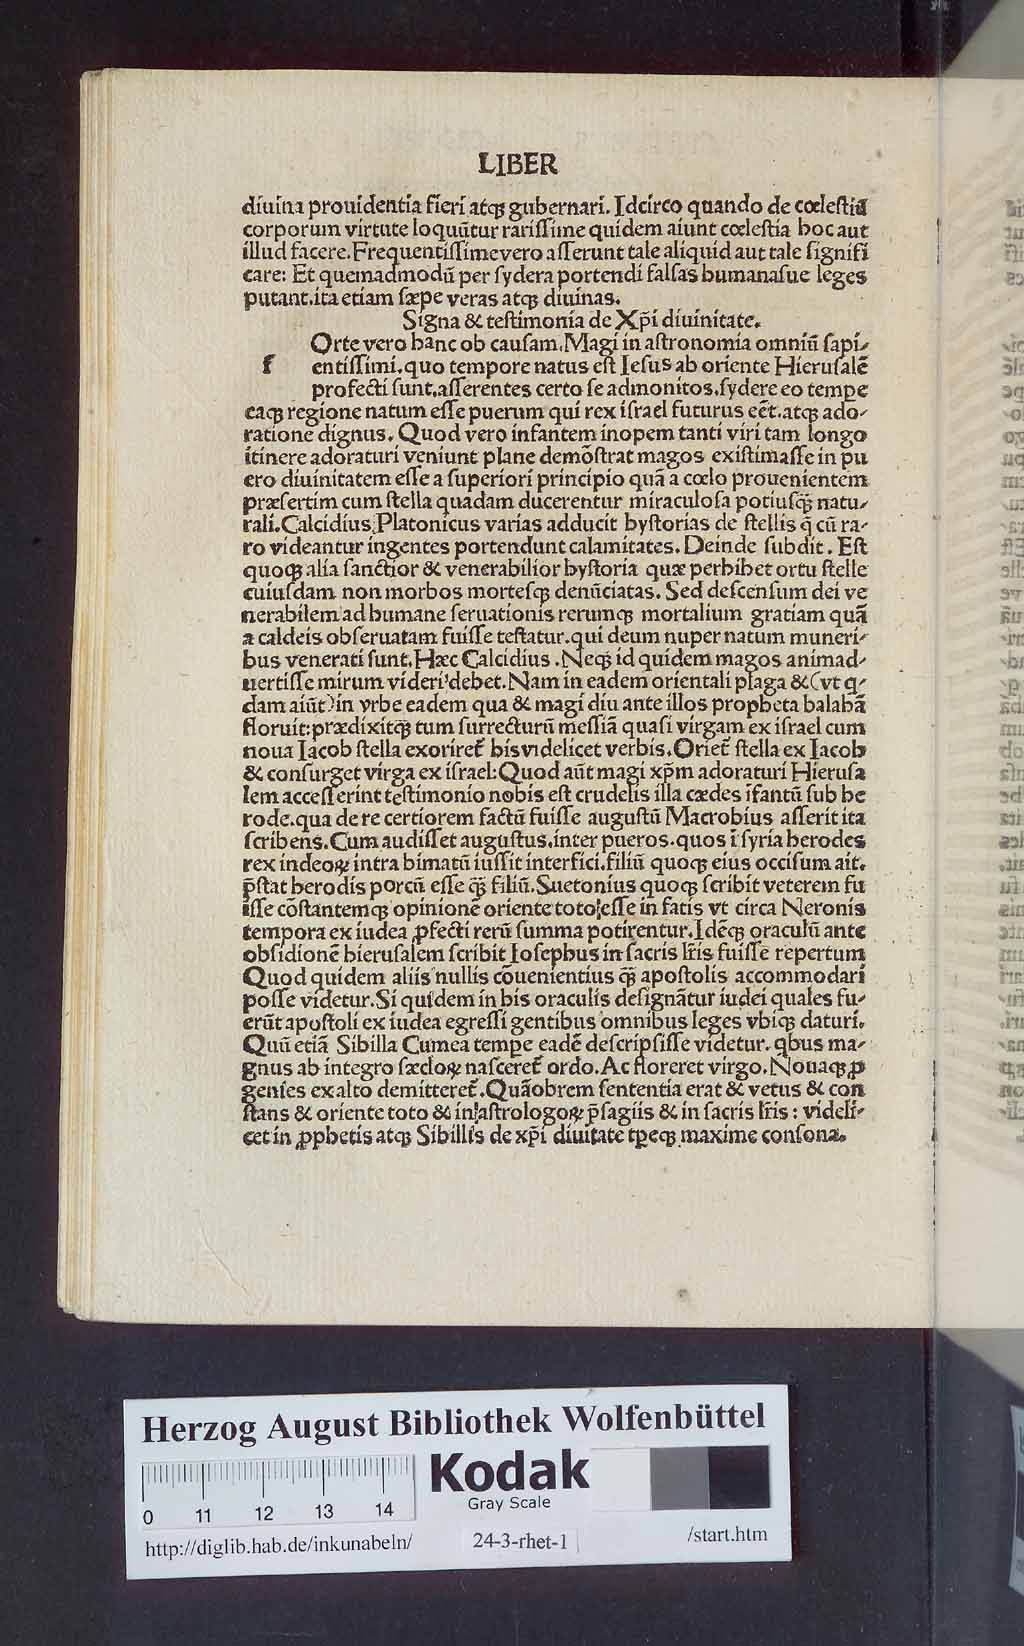 LIBER
diuina prouidentia fieri atqꝫ gubernari. Idcirco quando de cœlestiū
corporum virtute loquūtur rarissime quidem aiunt cœlestia hoc aut
illud facere. Frequentissime vero asserunt tale aliquid aut tale signifi
care: Et quemadmodū per sydera portendi falsas humanasue leges
putant. ita etiam sæpe veras atqꝫ diuinas.
Signa & testimonia de Xp̄i diuinitate.
Orte vero hanc ob causam. Magi in astronomia omniū sapi-
f entissimi. quo tempore natus est Iesus ab oriente Hierusalē
profecti sunt. asserentes certo se admonitos. sydere eo tempe
eaqꝫ regione natum esse puerum qui rex israel futurus eēt. atqꝫ ado-
ratione dignus. Quod vero infantem inopem tanti viri tam longo
itinere adoraturi veniunt plane demōstrat magos existimasse in pu
ero diuinitatem esse a superiori principio quā a cœlo prouenientem
præsertim cum stella quadam ducerentur miraculosa potiusqꝫ̄ natu-
rali. Calcidius Platonicus varias adducit hystorias de stellis q̄ cū ra-
ro videantur ingentes portendunt calamitates. Deinde subdit. Est
quoqꝫ alia sanctior & venerabilior hystoria quæ perhibet ortu stelle
cuiusdam non morbos mortesqꝫ denūciatas. Sed descensum dei ve
nerabilem ad humane seruationis rerumqꝫ mortalium gratiam quā
a caldeis obseruatam fuisse testatur. qui deum nuper natum muneri-
bus venerati sunt. Hæc Calcidius. Neqꝫ id quidem magos animad-
uertisse mirum videri debet. Nam in eadem orientali plaga & (vt q-
dam aiūt) in vrbe eadem qua & magi diu ante illos propheta balahā
floruit: prædixitqꝫ tum surrecturū messiā quasi virgam ex israel cum
noua Iacob stella exoriret̄ hisvidelicet verbis. Oriet̄ stella ex Iacob
& consurget virga ex israel: Quod aūt magi xp̄m adoraturi Hierusa
lem accesserint testimonio nobis est crudelis illa cædes īfantū sub he
rode. qua de re certiorem factū fuisse augustū Macrobius asserit ita
scribens. Cum audisset augustus. inter pueros. quos ī syria herodes
rex indeoꝝ intra bimatū iussit interfici. filiū quoqꝫ eius occisum ait.
p̄stat herodis porcū esse qꝫ̄ filiū. Suetonius quoqꝫ scribit veterem fu
isse cōstantemqꝫ opinionē oriente toto esse in fatis vt circa Neronis
tempora ex iudea ꝓfecti rerū summa potirentur. Idēqꝫ oraculū ante
obsidionē hierusalem scribit Iosephus in sacris lr̄is fuisse repertum
Quod quidem aliis nullis cōuenientius qꝫ̄ apostolis accommodari
posse videtur. Si quidem in his oraculis designātur iudei quales fu-
erūt apostoli ex iudea egressi gentibus omnibus leges vbiqꝫ daturi.
Quū etiā Sibilla Cumea tempe eadē descripsisse videtur. qbus ma-
gnus ab integro sæcloꝝ nasceret̄ ordo. Ac floreret virgo. Nouaqꝫ ꝓ
genies ex alto demitteret̄. Quāobrem sententia erat & vetus & con
stans & oriente toto & in astrologoꝝ p̄sagiis & in sacris lr̄is: videli-
cet in ꝓphetis atqꝫ Sibillis de xp̄i diuitate tꝑeqꝫ maxime consona.
Herzog August Bibliothek Wolfenbüttel
0 11 12 13 14
Kodak
Gray Scale
http://diglib.hab.de/inkunabeln/ 24-3-rhet-1 /start.htm